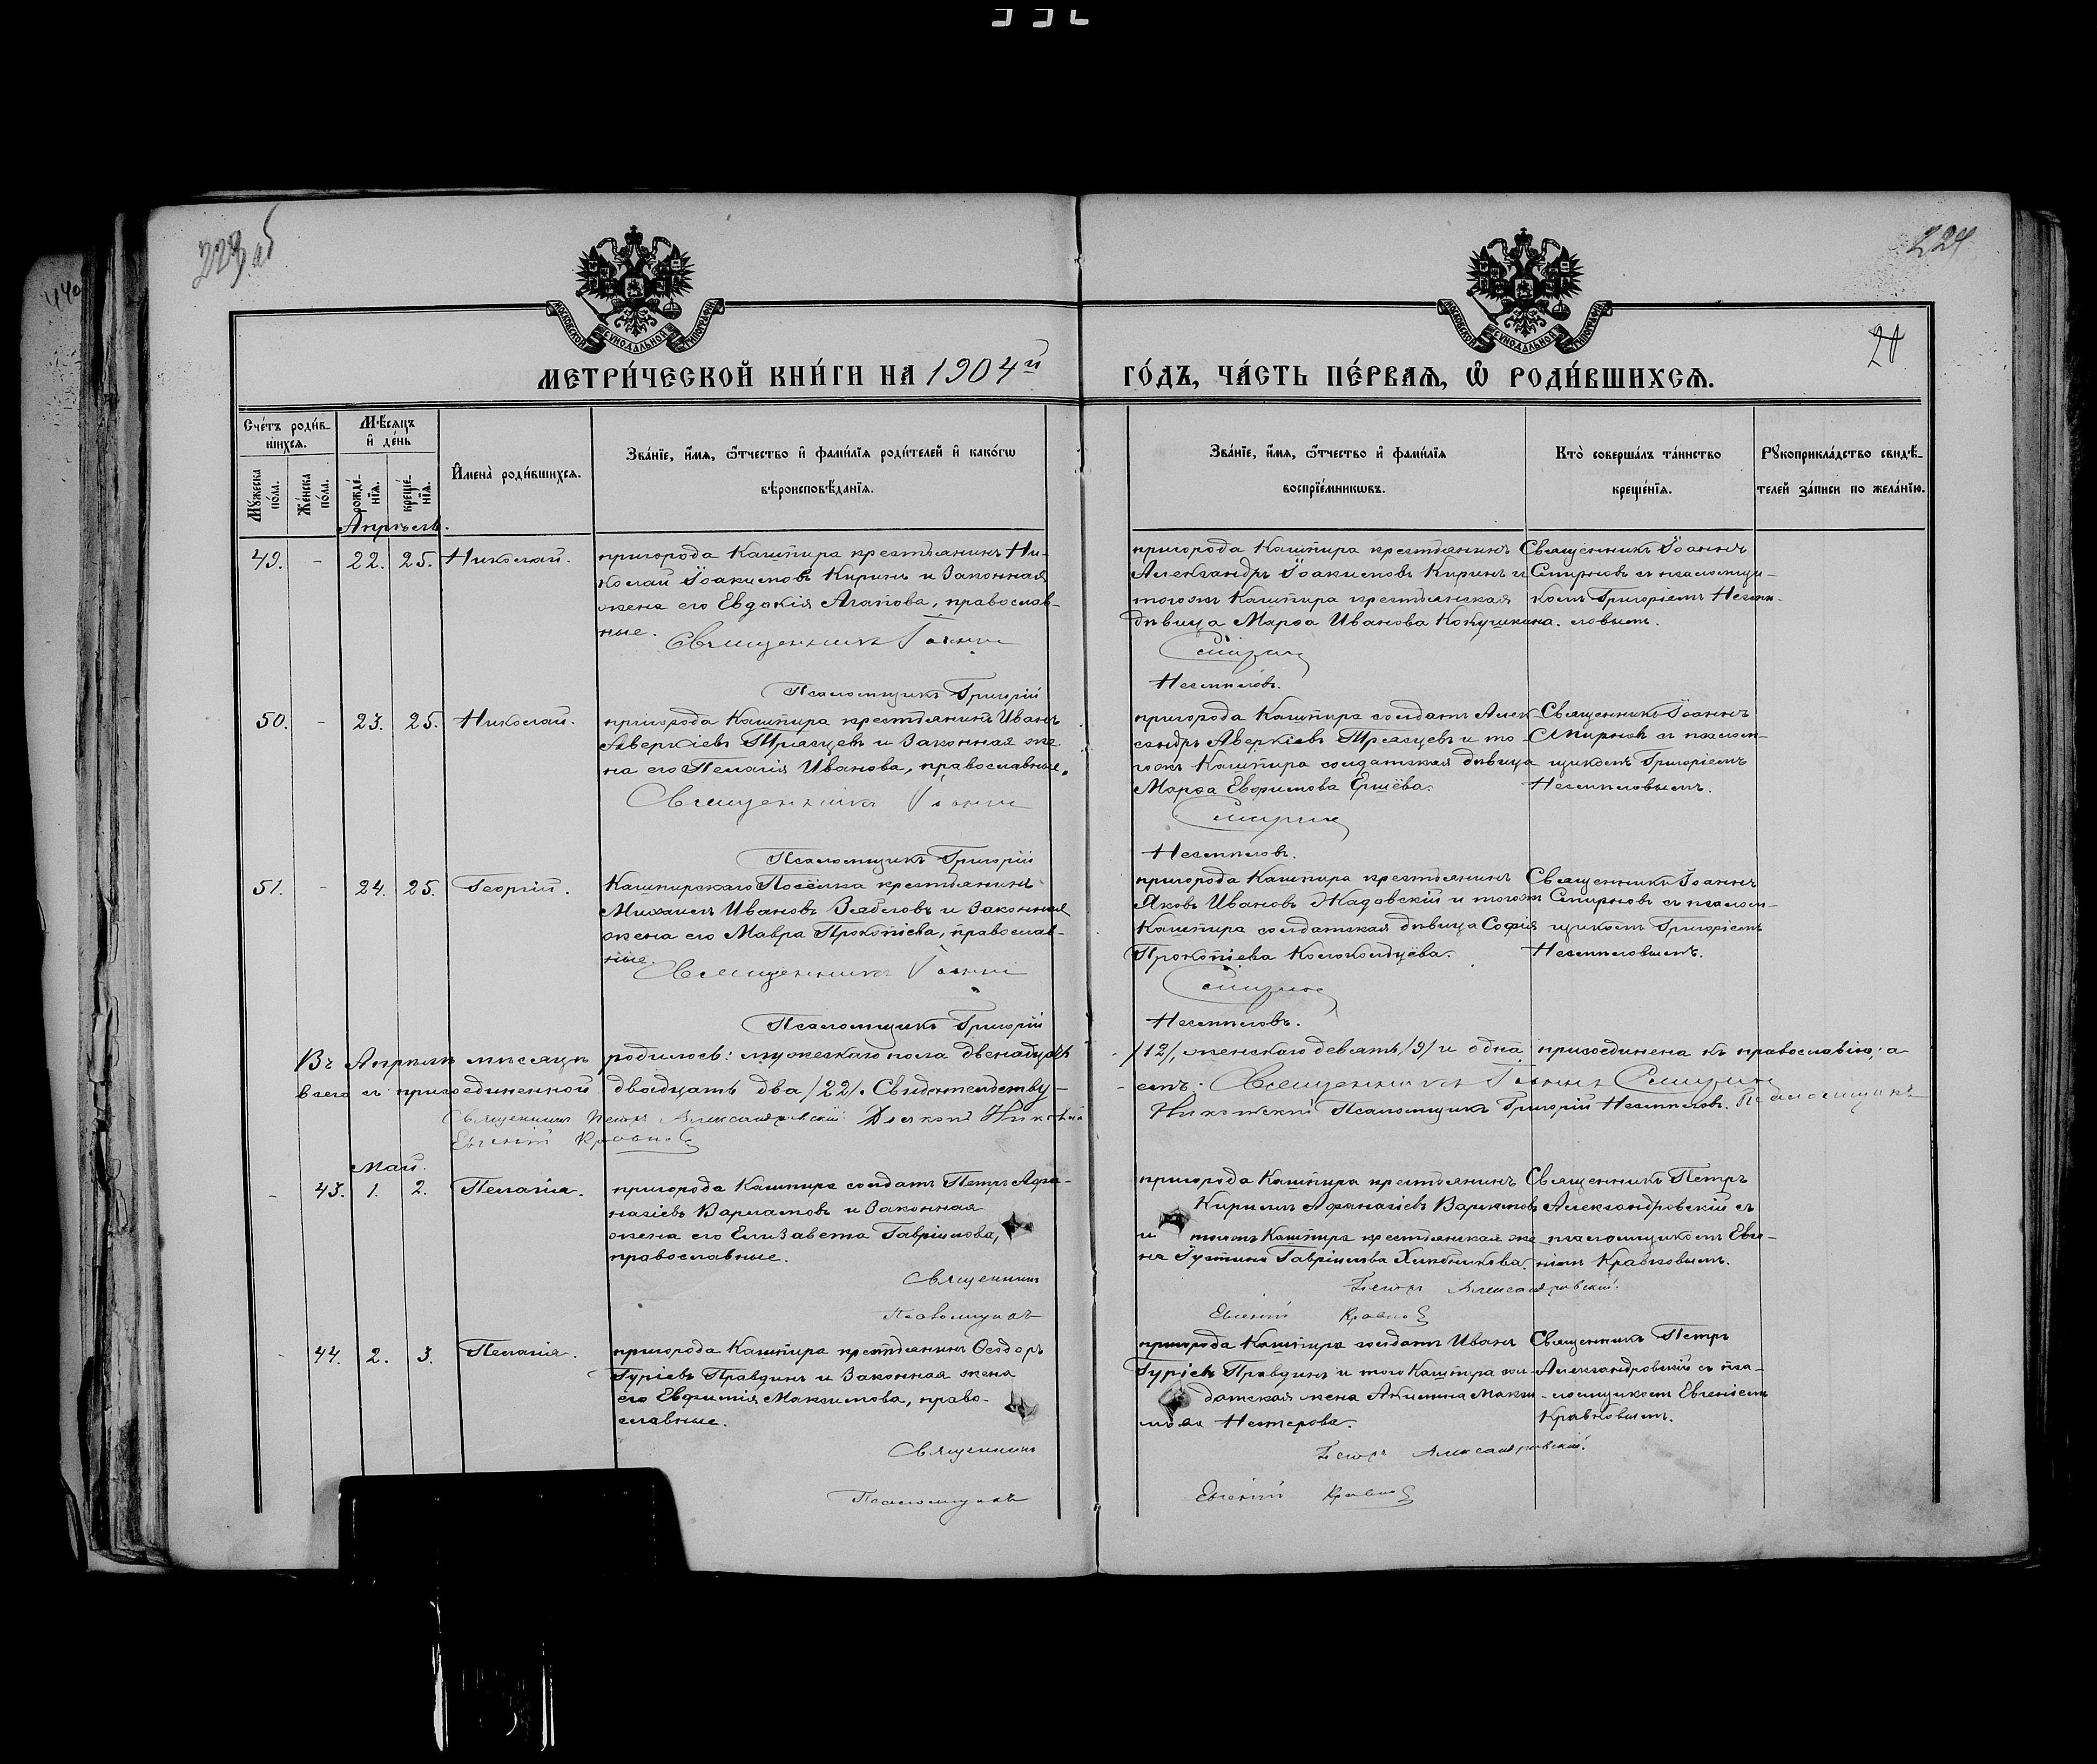 223 об
224
21
МЕТРИ́ЧЕСКОЙ КНИ́ГИ НА 1904й ГО́ДЪ, ЧА́СТЬ ПЕ́РВАЯ, Ѿ РОДИ́ВШИХСЯ.
Сче́тъ роди́в-
шихся.
Мꙋ́жеска по́ла.
Же́нска по́ла.
Мѣ́сяцъ
и҆ де́нь
рожде́-
нїя.
креще́-
нїя.
И҆мена̀ роди́вшихся.
Зва́нїе, и҆́мя, ѿтчество и҆ фами́лїя роди́телей и҆ како́гѡ
вѣроисповѣ́данїя.
Зва́нїе, и҆́мя, ѿтчество и҆ фами́лїя
воспрїе́мникѡвъ.
Кто̀ соверша́лъ та́инство
креще́нїя.
Рꙋкоприкла́дство свидѣ́-
телей за́писи по жела́нїю.
Апрѣль.
49. - 22. 25. Николай.
пригорода Кашпира крестьянинъ Ни-
колай Іоакимовъ Киринъ и законная
жена его Евдокія Агапова, православ-
ные.
Священникъ Іоаннъ
Псаломщикъ Григорій
пригорода Кашпира крестьянинъ
Александръ Іоакимовъ Киринъ и
тогожъ Кашпира крестьянская
дѣвица Марѳа Иванова Кокушкина.
Смирновъ
Несмѣловъ.
Священникъ Іоаннъ
Смирновъ съ псаломщи-
комъ Григоріемъ Несмѣ-
ловымъ.
50. - 23. 25. Николай.
пригорода Кашпира крестьянинъ Иванъ
Аверкіевъ Трясцевъ и законная же-
на его Пелагія Иванова, православные.
Священникъ Іоаннъ
Псаломщикъ Григорій
пригорода Кашпира солдатъ Алек-
сандръ Аверкіевъ Трясцевъ и то-
гожъ Кашпира солдатская дѣвица
Марѳа Евфимова Ершёва.
Смирновъ
Несмѣловъ.
Священникъ Іоаннъ
Смирновъ съ псалом-
щикомъ Григоріемъ
Несмѣловымъ.
51. - 24. 25. Георгій.
Кашпирскаго Посёлка крестьянинъ
Михаилъ Ивановъ Зябловъ и законная
жена его Мавра Прокопіева, православ-
ные.
Священникъ Іоаннъ
Псаломщикъ Григорій
пригорода Кашпира крестьянинъ
Яковъ Ивановъ Жадовскій и тогожъ
Кашпира солдатская дѣвица Софія
Прокопіева Колокольцева.
Смирновъ
Несмѣловъ.
Священникъ Іоаннъ
Смирновъ съ псалом-
щикомъ Григоріемъ
Несмѣловымъ.
Въ Апрѣлѣ мѣсяцѣ родилось: мужескаго пола двенадцать /12/, женскаго девять /9/ и одна присоединена къ православію; а
всего съ присоединенной двадцать два /22/. Свидѣтельству-
емъ: Священникъ Іоаннъ Смирновъ
Священникъ Петръ Александровскій Діаконъ Николай
Никольскій Псаломщикъ Григорій Несмѣловъ. Псаломщикъ
Евгеній Кравковъ
Май.
- 43. 1. 2. Пелагія.
пригорода Кашпира солдатъ Петръ Аѳа-
насіевъ Варламовъ и законная
жена его Елизавета Гавріилова,
православные.
Священникъ
Псаломщикъ
пригорода Кашпира крестьянинъ
Кириллъ Аѳанасіевъ Варламовъ
и тогожъ Кашпира крестьянская же-
на Іустина Гавріилова Хлѣбникова.
Петръ Александровскій.
Евгеній Кравковъ
Священникъ Петръ
Александровскій съ
псаломщикомъ Евге-
ніемъ Кравковымъ.
- 44. 2. 3. Пелагія.
пригорода Кашпира крестьянинъ Ѳеодоръ
Гуріевъ Правдинъ и законная жена
его Евфимія Максимова, право-
славные.
Священникъ
Псаломщикъ
пригорода Кашпира солдатъ Иванъ
Гуріевъ Правдинъ и того Кашпира сол-
датская жена Акилина Макси-
мова Нестерова.
Петръ Александровскій.
Евгеній Кравковъ
Священникъ Петръ
Александровскій съ пса-
ломщикомъ Евгеніемъ
Кравковымъ.